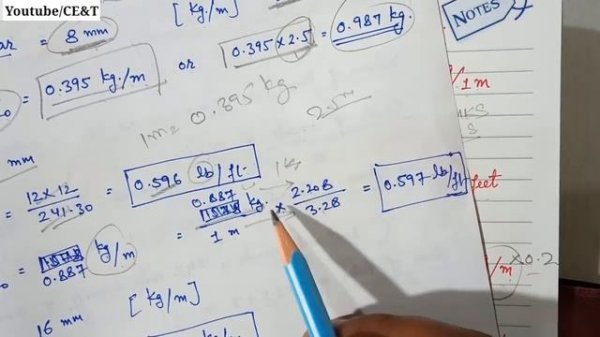 Youtube/CE&T
[Kg/m]
NOTES
= 8 mm
0.395 kg/m or 0.395 x 2.5 = 0.987 kg.
/1 m
1m = 0.395 kg
2.5 m
mm
1 kg
= 12 x 12 / 241.30 = 0.596 lb/ft.
0.887 kg. x 2.208 / 3.28 = 0.597 lb/ft
feet
= 1 m
= 0.887 kg/m
x0.2
/m
[kg/m]
16 mm